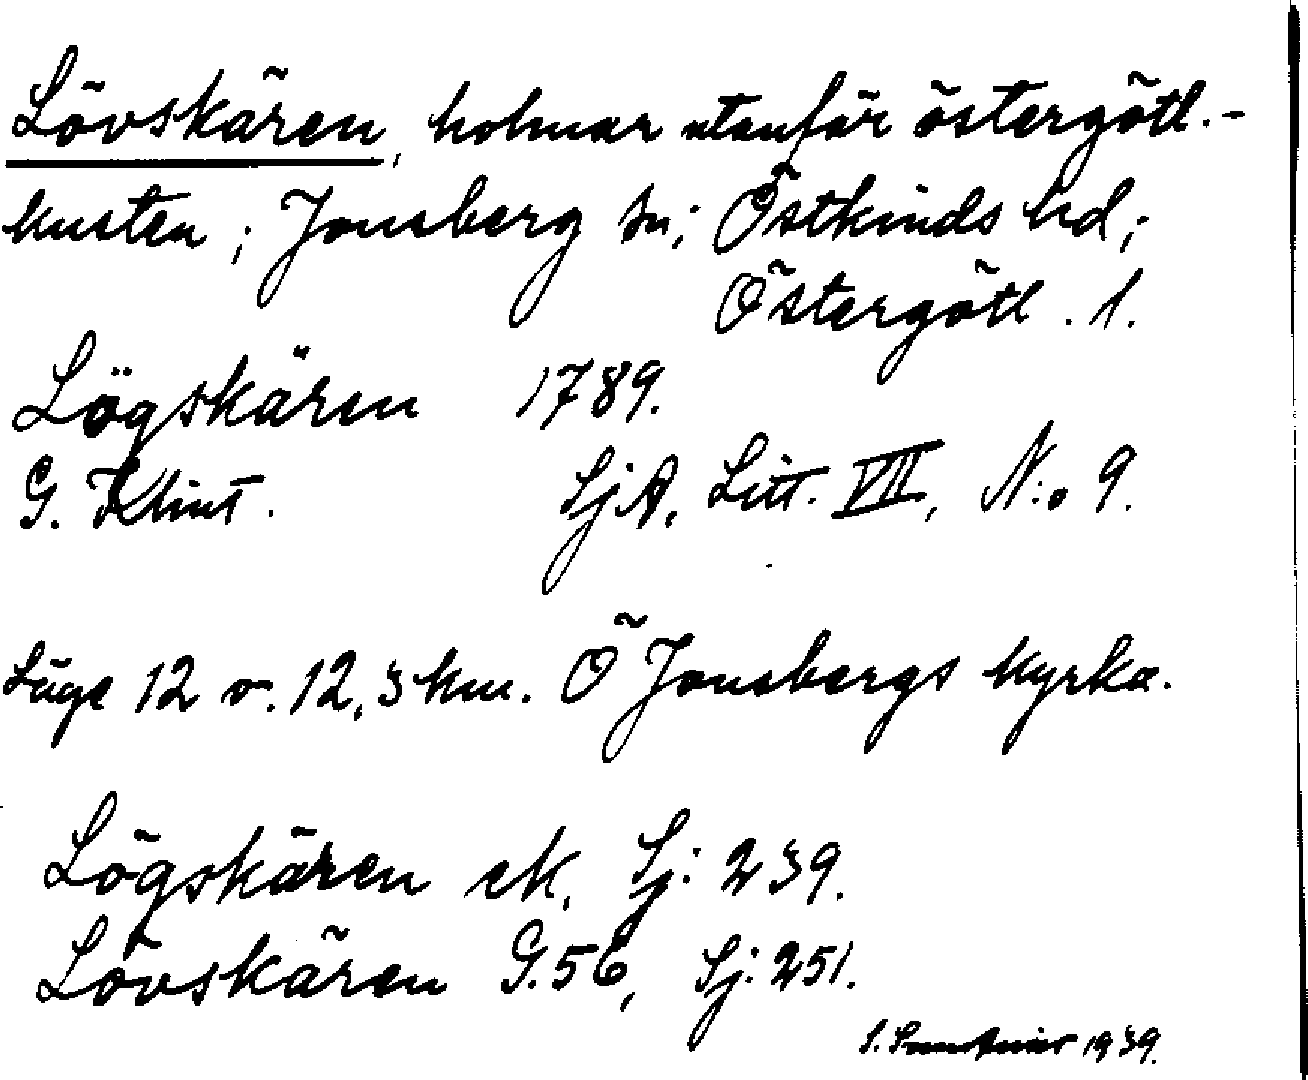 Lövskären, holmar utanför östergötl.-
kusten; Jonsberg sn; Östkinds hd;
Östergötl. l.
Lögskären 1789.
G. Klint. SjA, Litt. VII, N:o 9.
Läge 12 o. 12,3 km. Ö Jonsbergs kyrka.
Lögskären ek, Sj: 239.
Lövskären G.56, Sj: 251.
1939.